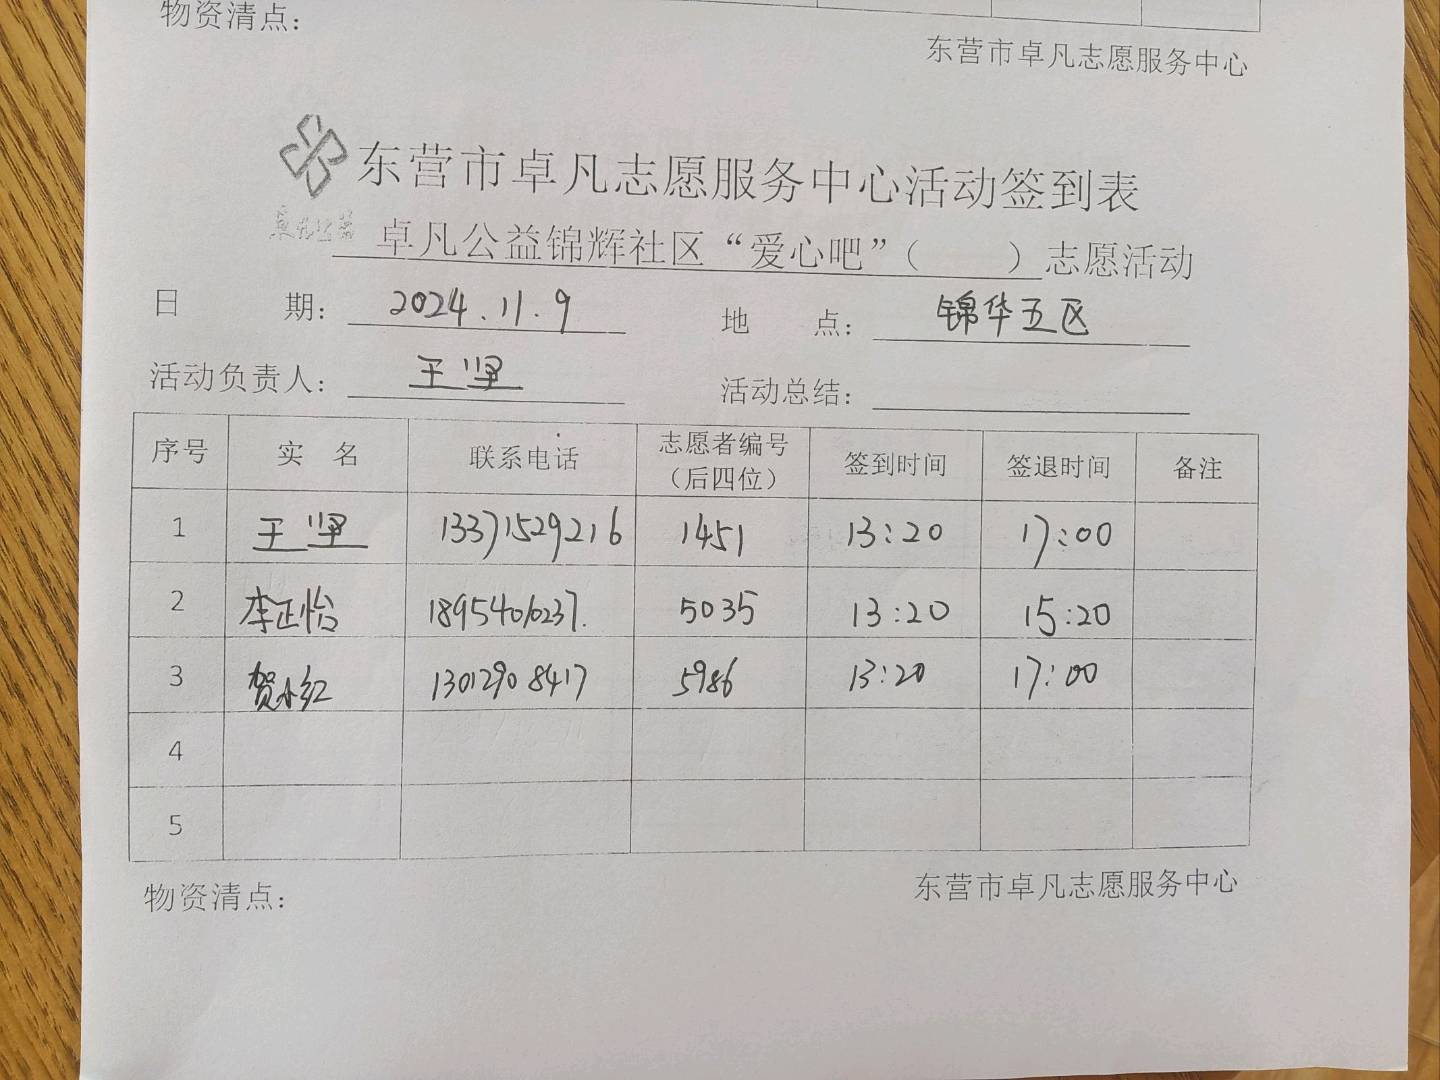 物资清点：
东营市卓凡志愿服务中心
东营市卓凡志愿服务中心活动签到表
卓凡公益
卓凡公益锦辉社区“爱心吧”（ ）志愿活动
日 期： 2024.11.9 地 点： 锦华五区
活动负责人： 王坚 活动总结：
序号 实 名 联系电话 志愿者编号（后四位） 签到时间 签退时间 备注
1 王坚 13371529216 1451 13:20 17:00
2 李正怡 18954010237. 5035 13:20 15:20
3 贺小红 13012908417 5986 13:20 17:00
4
5
物资清点：
东营市卓凡志愿服务中心